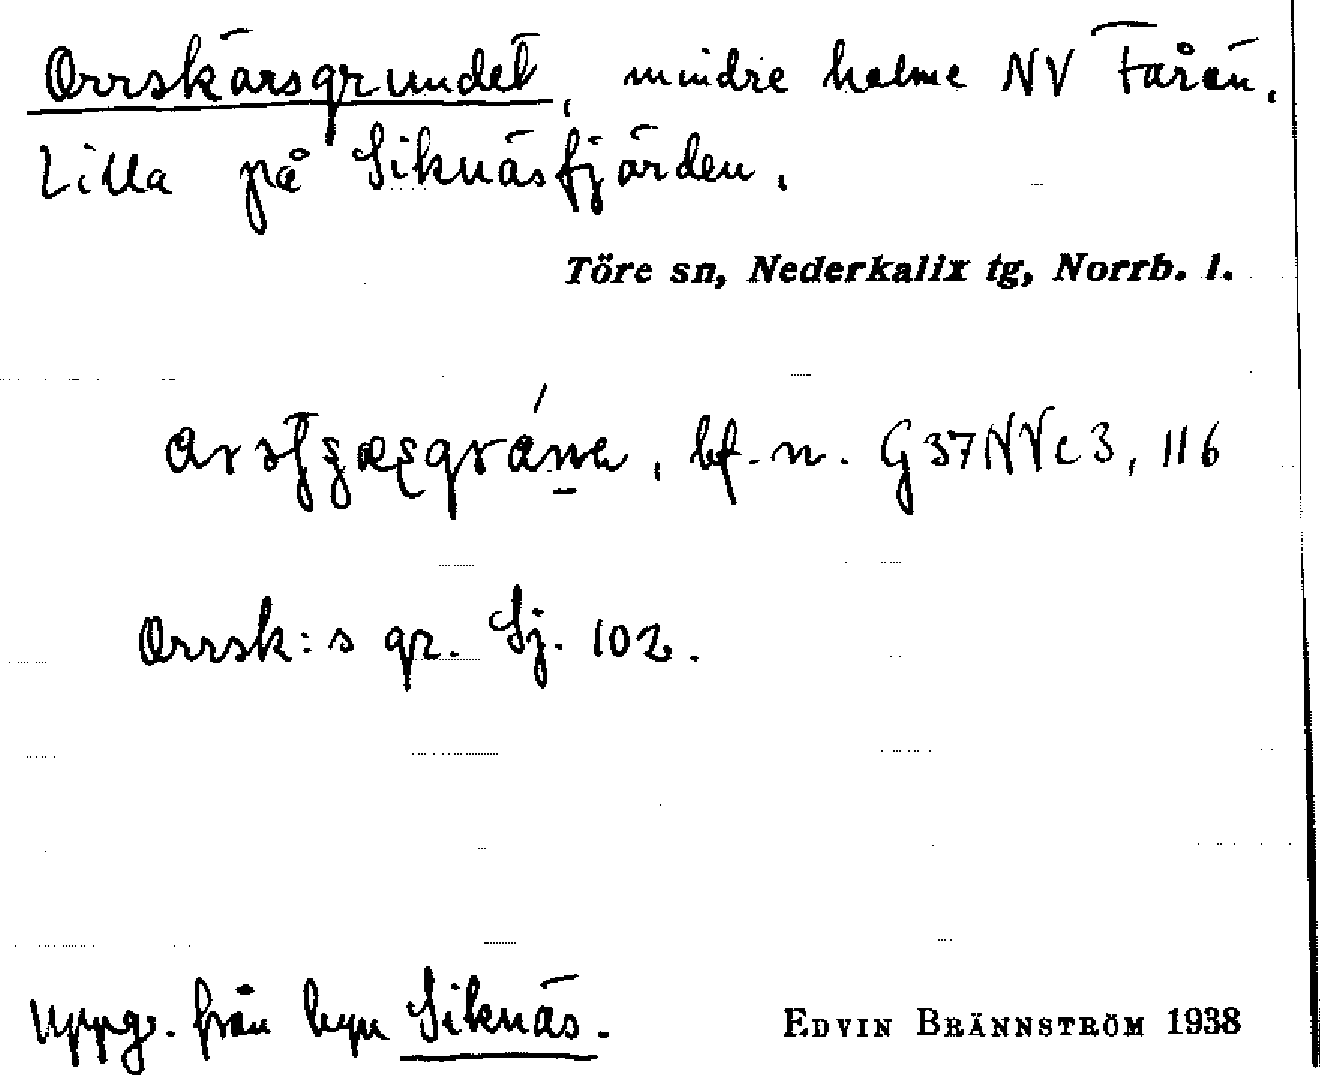 Orrskärsgrundet, mindre holme NV Tårän,
Lilla på Siknäsfjärden.
Töre sn, Nederkalix tg, Norrb. l.
bf. n. G37NVc3, 116
Orrsk:s gr. Sj. 102.
Uppg. från byn Siknäs.
EDVIN BRÄNNSTRÖM 1938